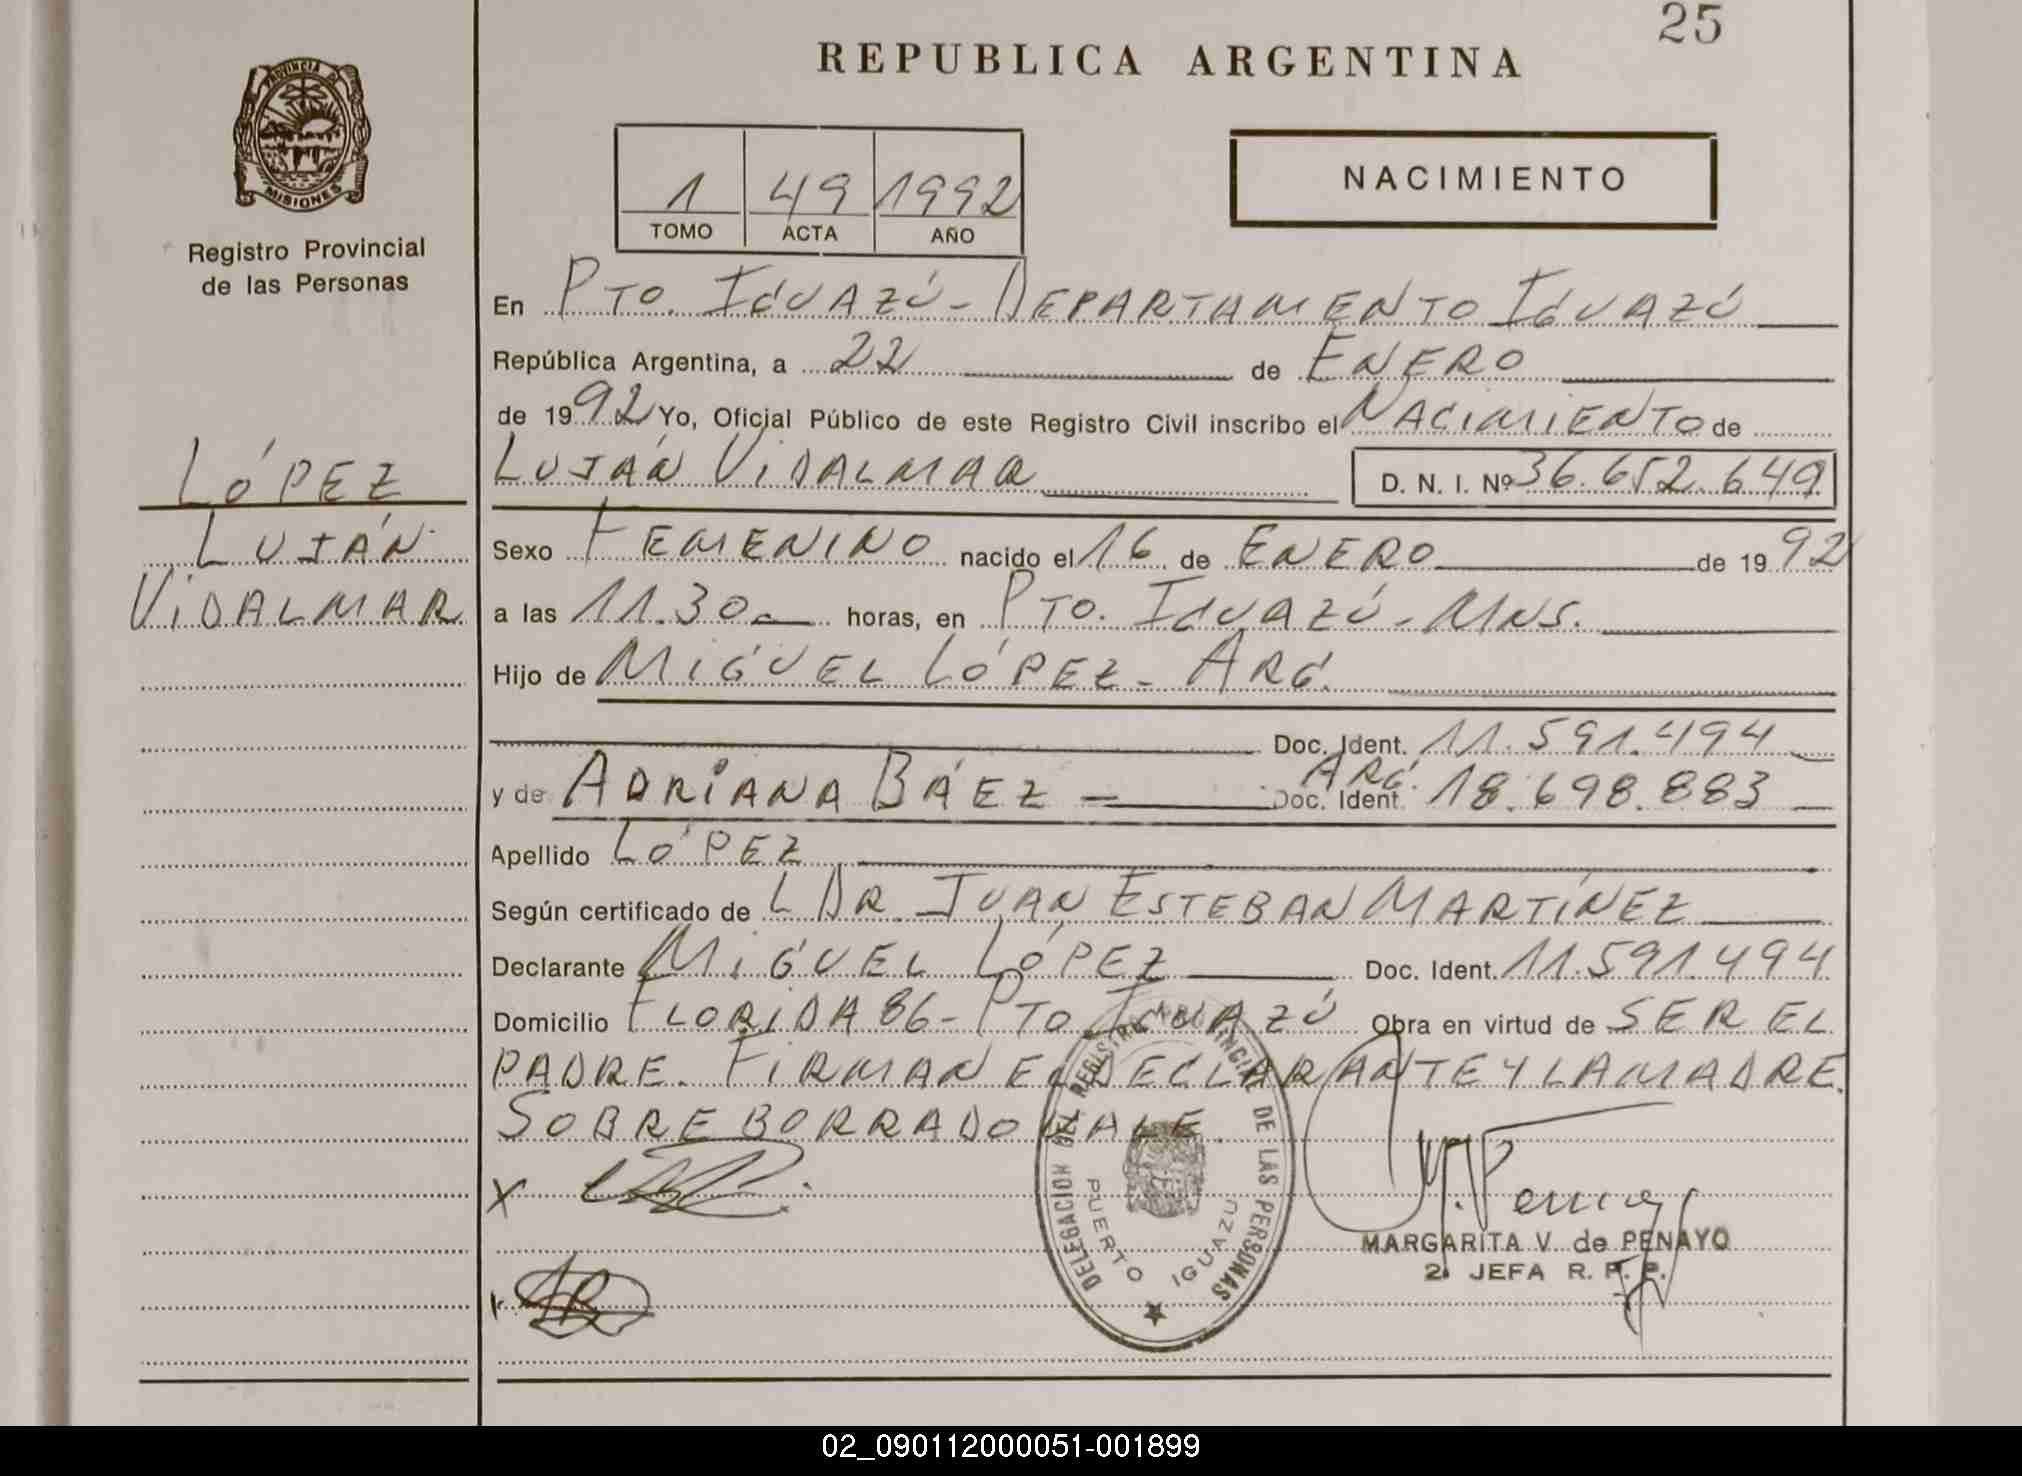 25
REPUBLICA ARGENTINA
PROVINCIA DE
MISIONES
Registro Provincial
de las Personas
1 49 1992
TOMO ACTA AÑO
NACIMIENTO
En PTO. IGUAZÚ - DEPARTAMENTO IGUAZÚ
República Argentina, a 22 de ENERO
de 1992 Yo, Oficial Público de este Registro Civil inscribo el NACIMIENTO de
LUJÁN VIDALMAR D. N. I. Nº 36.652.649
LÓPEZ
LUJÁN
VIDALMAR
Sexo FEMENINO nacido el 16 de ENERO de 1992
a las 11.30 horas, en PTO. IGUAZÚ - MNS.
Hijo de MIGUEL LÓPEZ - ARG.
Doc. Ident. 11.591.494
ARG.
y de ADRIANA BÁEZ - Doc. Ident. 18.698.883
Apellido LÓPEZ
Según certificado de L DR. JUAN ESTEBAN MARTÍNEZ
Declarante MIGUEL LÓPEZ Doc. Ident. 11.591.494
Domicilio FLORIDA 86 - PTO IGUAZÚ Obra en virtud de SER EL
PADRE. FIRMAN EL DECLARANTE Y LA MADRE.
SOBREBORRADO VALE.
X
DELEGACION DEL REGISTRO PROVINCIAL DE LAS PERSONAS
PUERTO IGUAZU
M. V. Penayo
MARGARITA V. de PENAYO
2ª JEFA R. P. P.
02_090112000051-001899